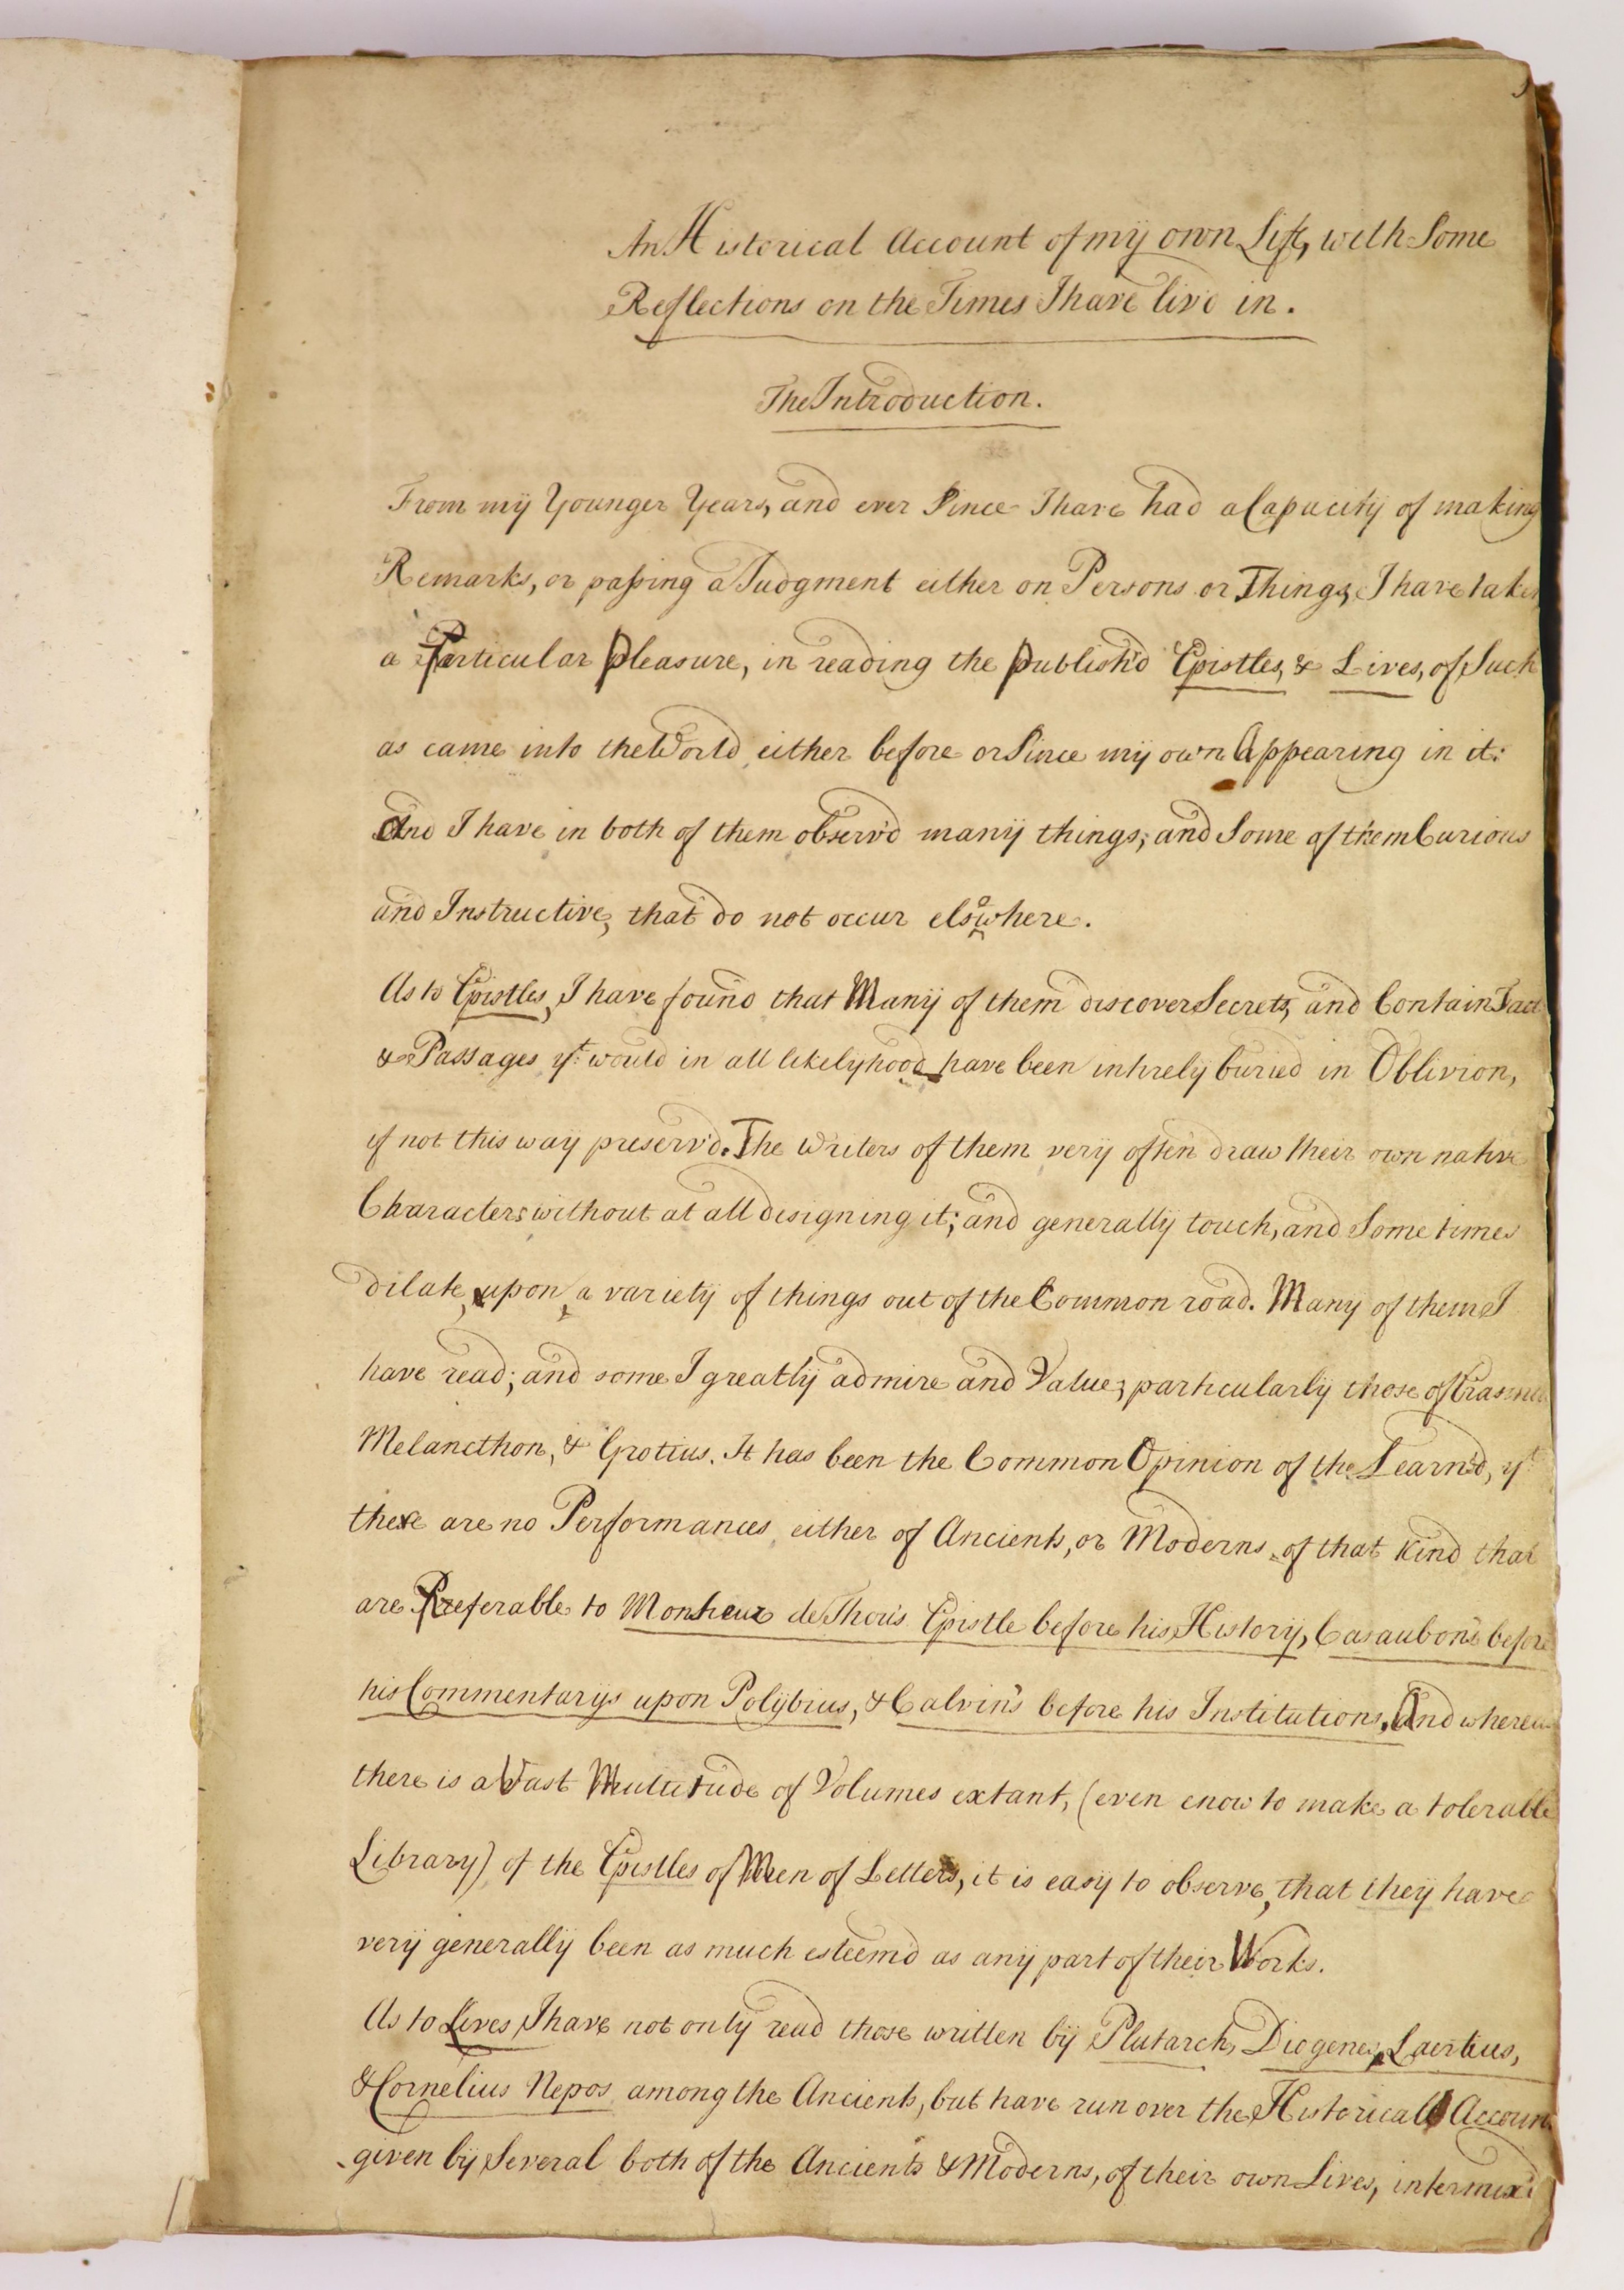 An Historical Account of my own Life, with Some
Reflections on the Times I have liv'd in.
The Introduction.
From my Younger Years, and ever Since I have had a Capacity of making
Remarks, or passing a Judgment either on Persons or Things, I have taken
a Particular Pleasure, in reading the Publish'd Epistles, & Lives, of Such
as came into the World either before or Since my own Appearing in it:
And I have in both of them observ'd many things; and Some of them Curious
and Instructive, that do not occur elsewhere.
As to Epistles, I have found that Many of them discover Secrets, and Contain Fact
& Passages yt. would in all likelyhood have been intirely buried in Oblivion,
if not this way preserv'd. The Writers of them very often draw their own native
Characters without at all designing it; and generally touch, and Sometimes
dilate, upon a variety of things out of the Common road. Many of them I
have read; and some I greatly admire and Value; particularly those of Erasmus
Melancthon, & Grotius. It has been the Common Opinion of the Learn'd, yt
there are no Performances either of Ancients, or Moderns of that Kind that
are Preferable to Monsieur de Thou's Epistle before his History, Casaubon's before
his Commentarys upon Polybius, & Calvin's before his Institutions. And whereas
there is a Vast Multitude of Volumes extant, (even enow to make a tolerable
Library) of the Epistles of Men of Letters, it is easy to observe, that they have
very generally been as much esteem'd as any part of their Works.
As to Lives, I have not only read those written by Plutarch, Diogenes Laertius,
& Cornelius Nepos among the Ancients, but have run over the Historical Accoun
given by Several both of the Ancients & Moderns, of their own Lives, intermix'd